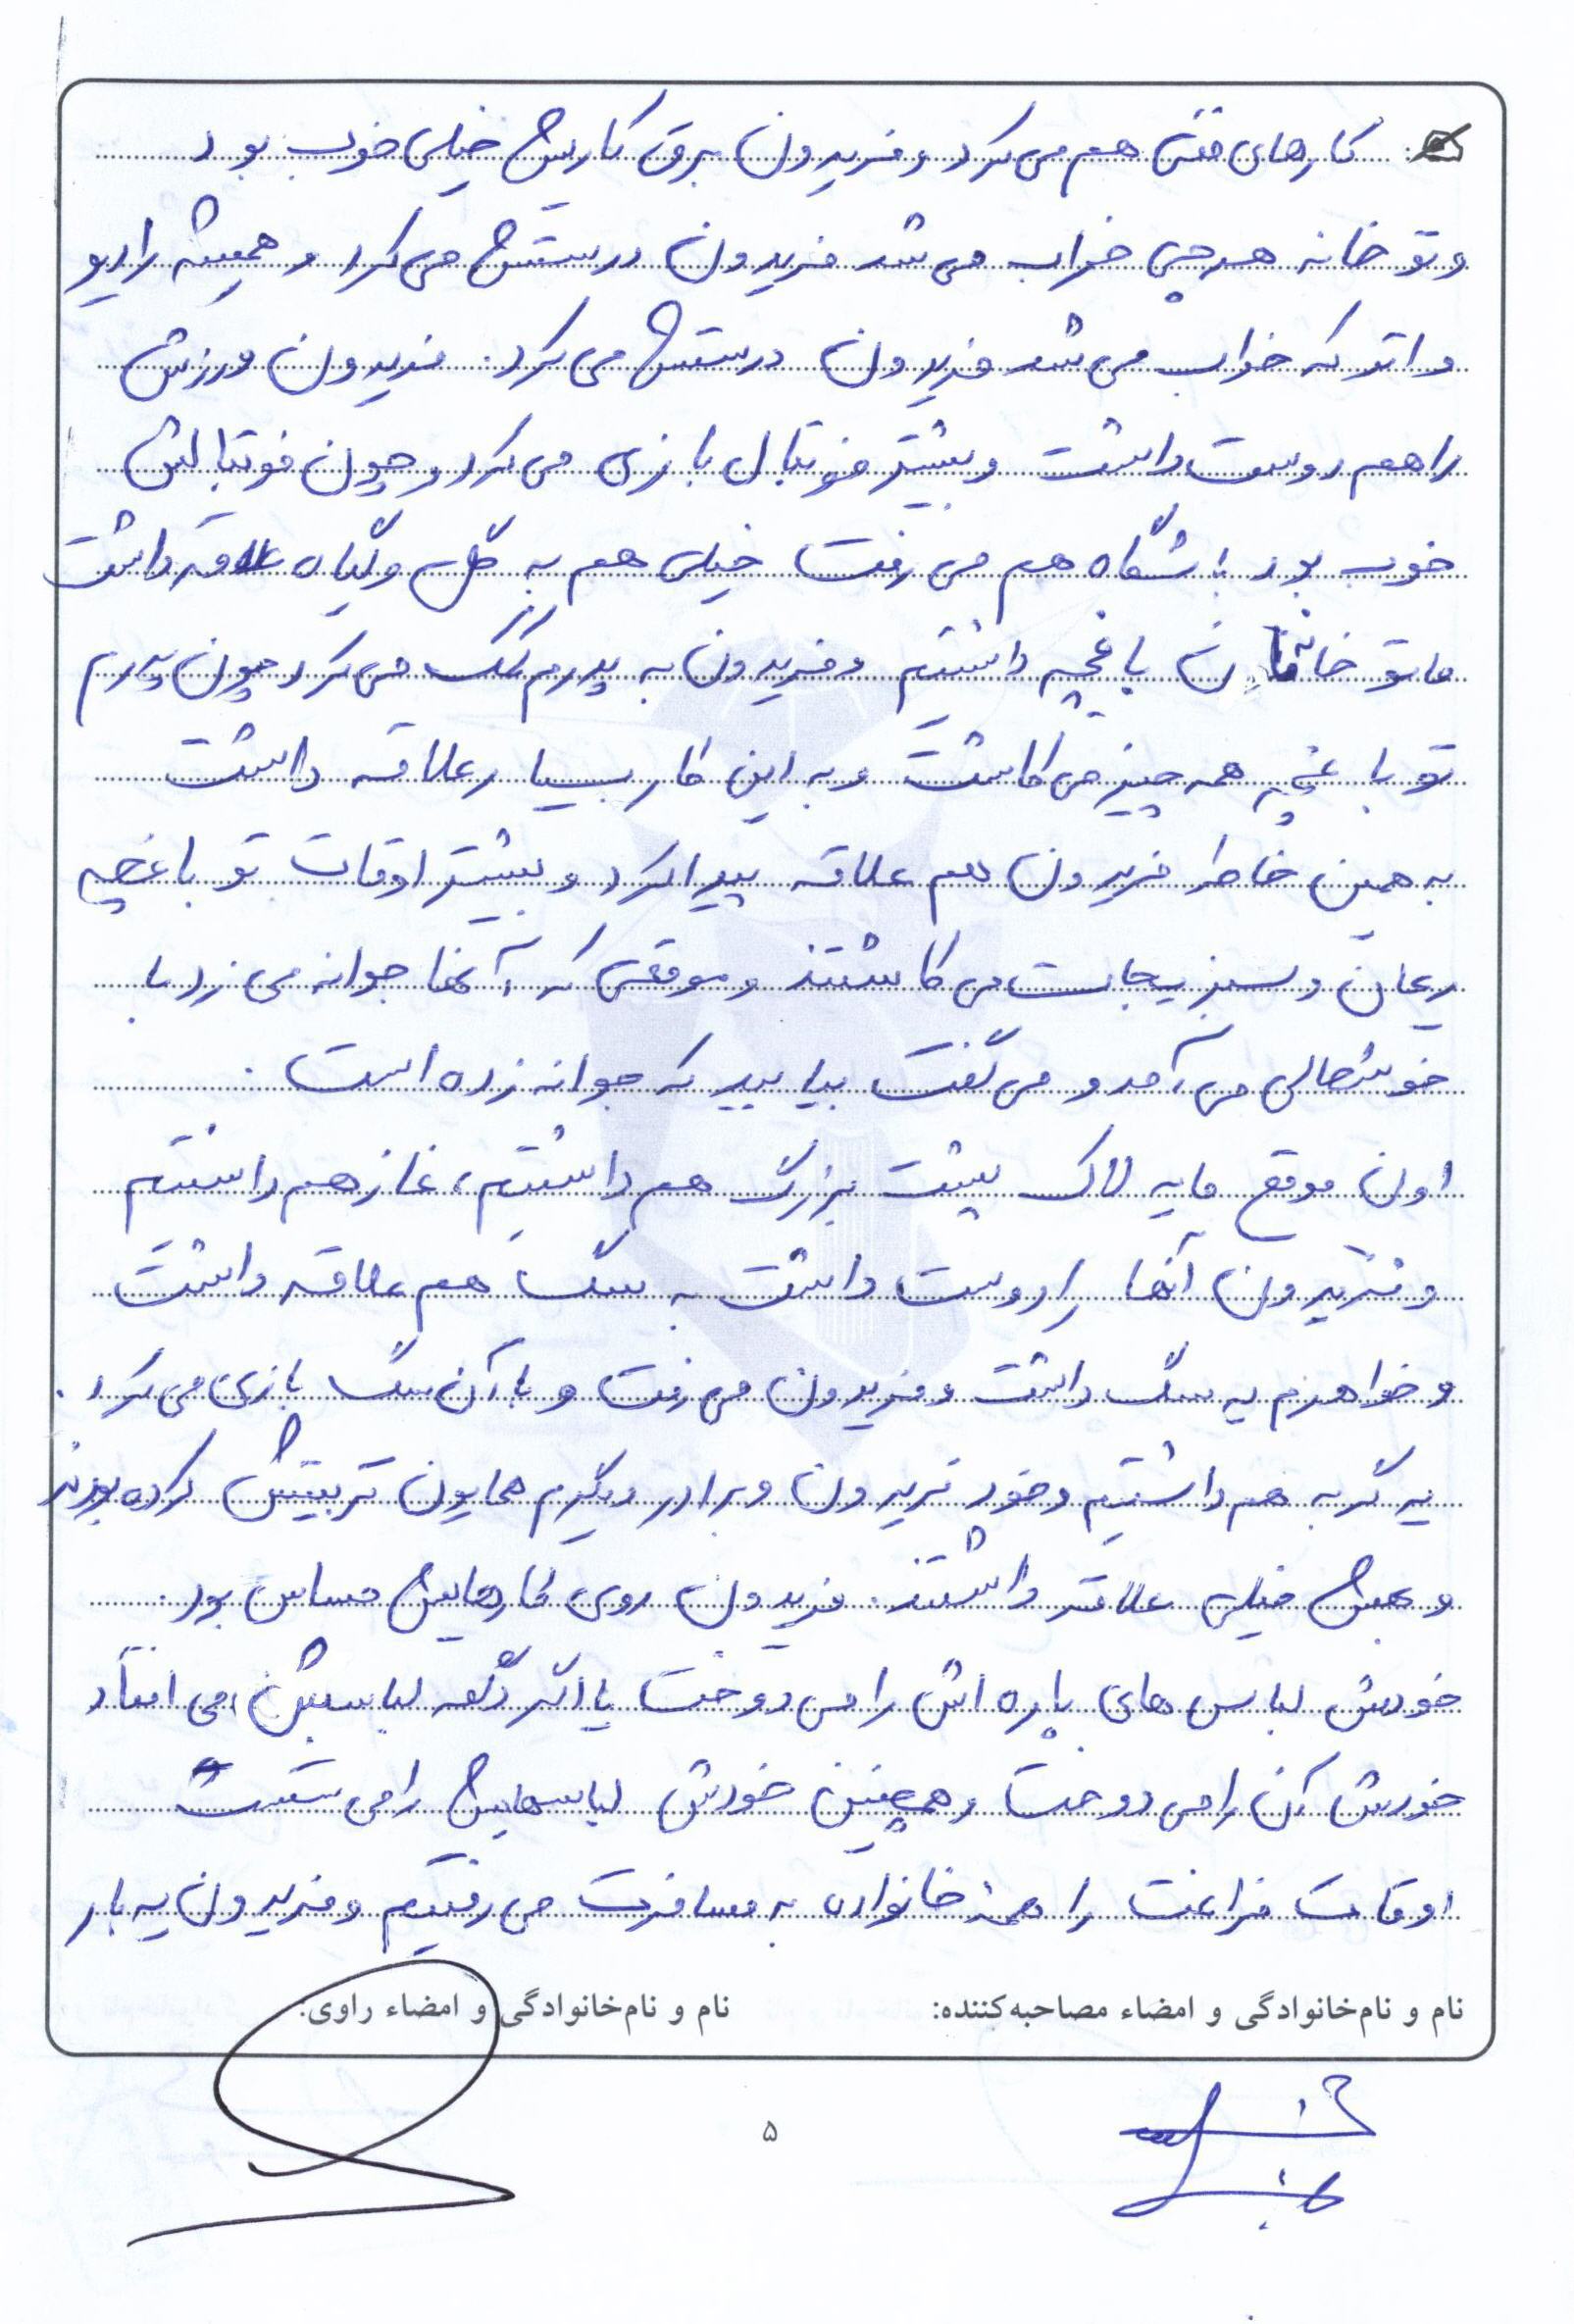 کارهای فنی هم می کرد و فریدون برق کاریش خیلی خوب بود
و تو خانه هرچی خراب می شد فریدون درستش می کرد و همیشه رادیو
و اتو که خراب می شد فریدون درستش می کرد. فریدون ورزش
را هم دوست داشت و بیشتر فوتبال بازی می کرد و چون فوتبالش
خوب بود باشگاه هم می رفت خیلی هم به گل و گیاه علاقه داشت
ما تو خانمان باغچه داشتیم و فریدون به پدرم کمک می کرد چون پدرم
تو باغچه همه چیز می کاشت و به این کار بسیار علاقه داشت
به همین خاطر فریدون هم علاقه پیدا کرد و بیشتر اوقات تو باغچه
ریحان و سبزیجات می کاشتند و موقعی که آنها جوانه می زد با
خوشحالی می آمد و می گفت بیایید که جوانه زده است.
اون موقع ما یه لاک پشت بزرگ هم داشتیم، غاز هم داشتیم
و فریدون آنها را دوست داشت به سگ هم علاقه داشت
و خواهرم یه سگ داشت و فریدون می رفت و با آن سگ بازی می کرد.
یه گربه هم داشتیم و خود فریدون و برادر دیگرم همایون تربیتش کرده بودند
و بهش خیلی علاقه داشتند. فریدون روی کارهایش حساس بود.
خودش لباس های پاره اش را می دوخت یا اگر دکمه لباسش می افتاد
خودش آن را می دوخت و همچنین خودش لباسهایش را می شست
اوقات فراغت را همه خانواده به مسافرت می رفتیم و فریدون یه بار
نام و نام‌خانوادگی و امضاء مصاحبه‌کننده:
نام و نام‌خانوادگی و امضاء راوی:
۵